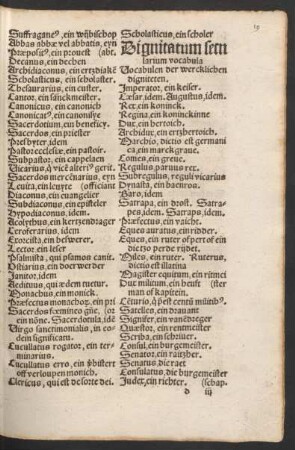 Suffraganeus, ein wijbischop
Abbas abbatis vel abbatia, eyn
Prepositus, ein prouest (abt.
Decanus, ein dechen
Archidiaconus, ein ertzdiaken
Scholasticus, ein scholaster
Thesaurarius, ein custer.
Cantor, ein sanckmeister
Canonicus, ein canonich
Canonicatus, ein canonisye
Sacerdotium, ein beneficy.
Sacerdos, ein priester
Presbyter, idem
Pastor ecclesie, ein pastoir.
Subpastor, ein cappelaen
Vicarius, qui vicem alterius gerit.
Sacerdos mercenarius, eyn
Leuita, ein leuyte (officiant
Diaconus, ein euangelier
Subdiaconus, ein episteler
Hypodiaconus, idem.
Acolythus, ein kertzendrager
Ceroferarius, idem
Exorcista, ein beswerer.
Lector, ein leser
Psalmista, qui psalmos canit.
Ostiarius, ein doerwerder
Janitor, idem
Aedituus, qui aedem tuetur.
Monachus, ein monick.
Praefectus monachorum, ein pri
Sacerdos foemineo genere, (or
ein nonne. Sacerdotula, idem
Virgo sanctimonialis, in eo
dem significatu.
Cucullatus rogator, ein ter
minarius.
Cucullatus erro, ein
off verloupen monich.
Clericus, qui est de sorte dei.
Scholasticus, ein scholer
Dignitatum secu
larium vocabula
Vocabulen der wercklichen
digniteten.
Imperator, ein keiser.
Caesar idem. Augustus, idem.
Rex, ein koninck.
Regina, ein koninckinne
Dux, ein hertoich.
Archidux, ein ertzhertoich.
Marchio, dictio est germani
ca, ein marckgraue.
Comes, ein greue.
Regulus, paruus rex.
Subregulus, reguli vicarius
Dynasta, ein baenron.
Baro, idem
Satrapa, ein drost. Satra
pes, idem. Satraps, idem.
Praefectus, ein vaicht.
Eques auratus, ein ridder.
Eques, ein ruter of pert of ein
dictzo perde rijdet.
Miles, ein ruter. Ruterus,
dictio est illatina
Magister equitum, ein ritmei
Dux militum, ein heuft (ster
man of kapitein.
Centurio, qui praeest centum militibus.
Satelles, ein drauant
Signifer, ein vanedreger
Quaestor, ein rentmeister
Scriba, ein schriuer.
Consul, ein burgemeister.
Senator, ein raitzher.
Senatus, die raet
Consulatus, die burgemeister
Judex, ein richter. (schap.
d iij